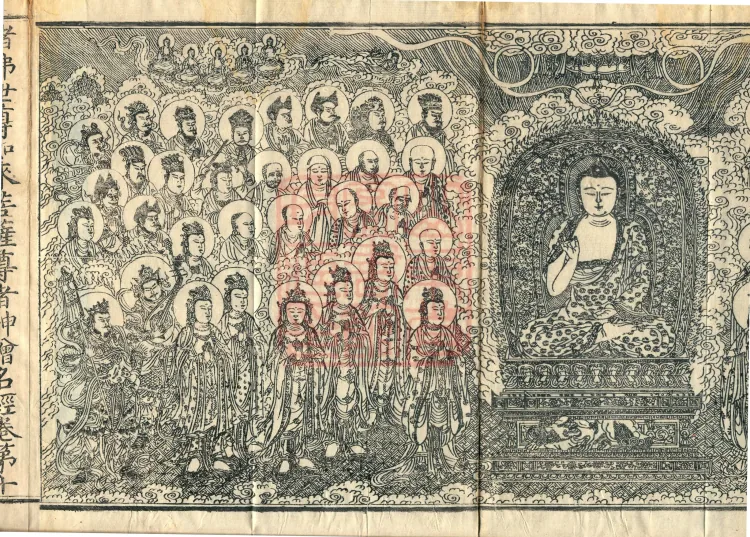 諸佛世尊如來菩薩尊者神僧名經卷第十